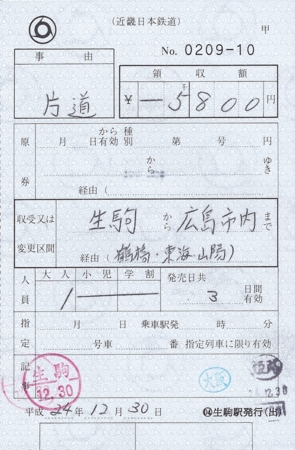 (近畿日本鉄道)
甲
事 由
No. 0209-10
片道
領 収 額
¥ 5800円
原券 月 日 から有効 種別 第 号 円
から ゆき
経由 ( )
収受又は変更区間
生駒 から 広島市内 まで
経由 (鶴橋・東海 山陽)
人員 大人 小児 学割 発売日共
1 3 日間有効
指定 月 日 乗車駅発 時 分
号車 番 指定列車に限り有効
記事
生駒
12.30
大阪
12.30
平成 24年 12月 30日
⑭生駒駅発行